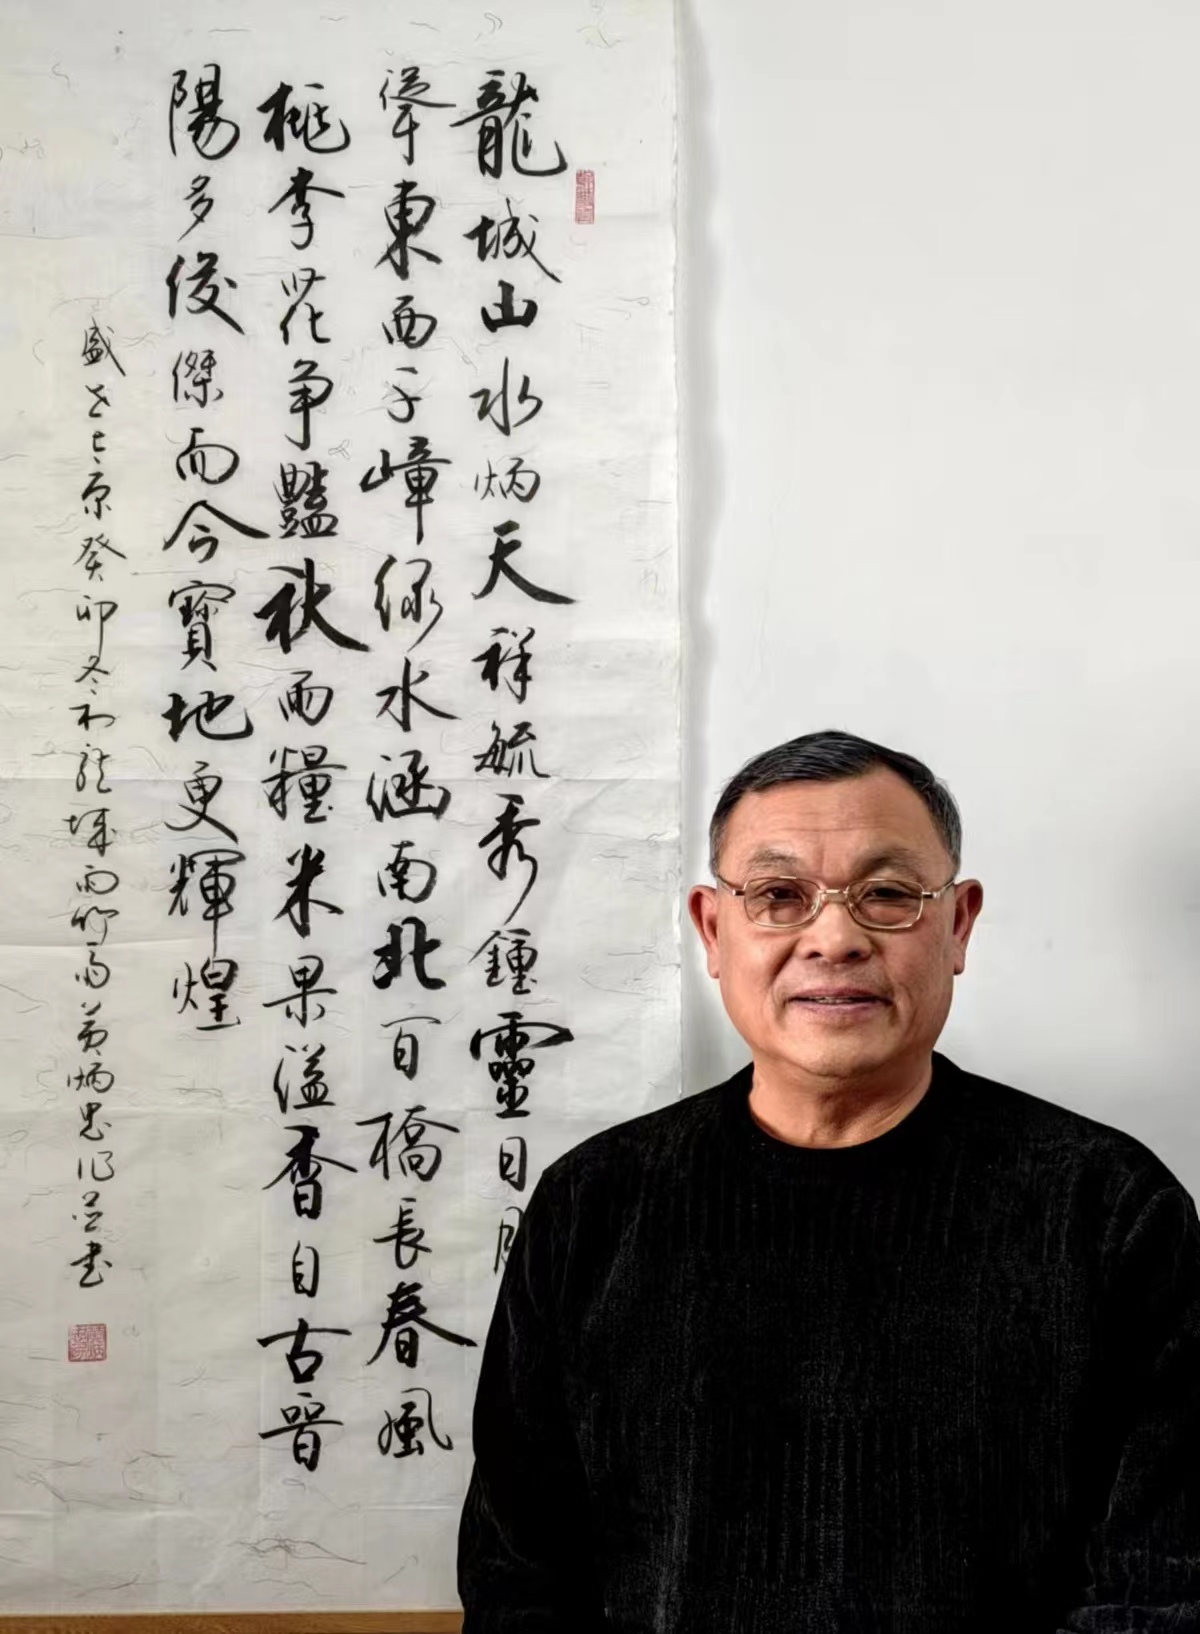 龍城山水炳天祥毓秀鍾靈日月
聳東西千嶂綠水涵南北百橋長春風
桃李花争豔秋雨糧米果溢香自古晉
陽多俊傑而今寶地更輝煌
盛世原癸卯冬於龍城雨竹黄炳忠作並書